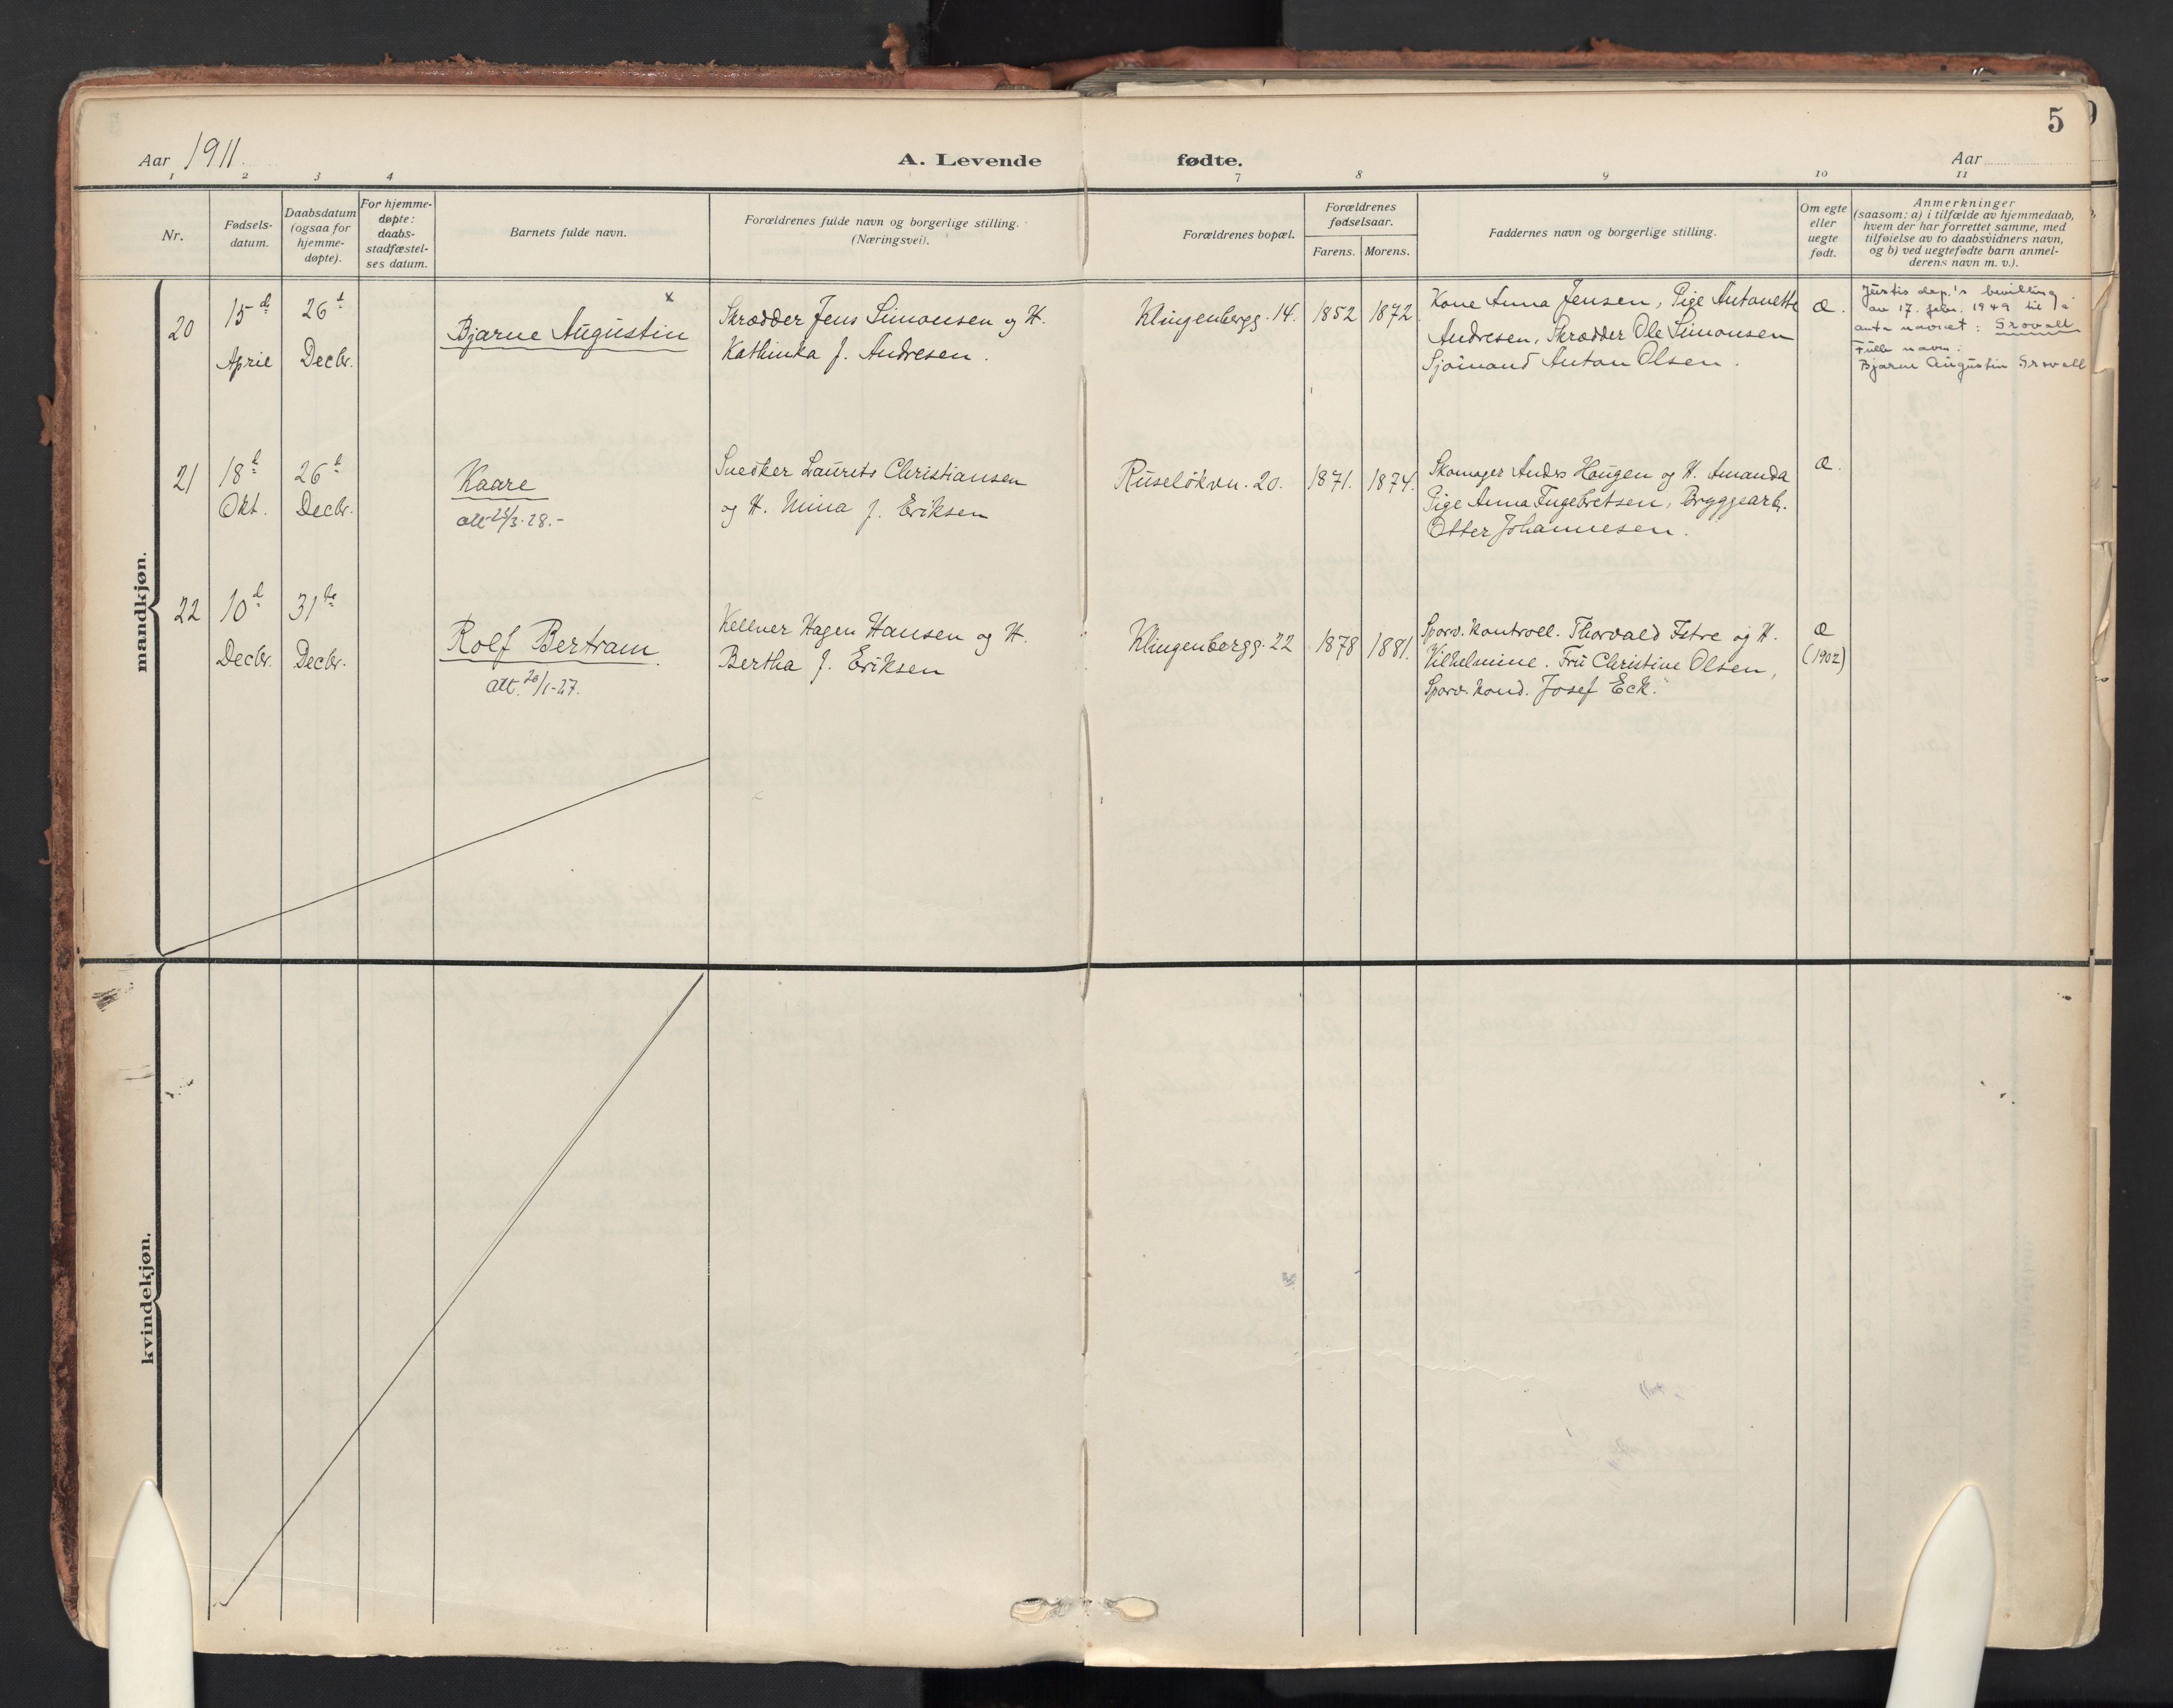 5
Aar 1911. A. Levende fødte. Aar
1 2 3 4 7 8 9 10 11
Nr.
Fødsels-
datum.
Daabsdatum
(ogsaa for
hjemme-
døpte).
For hjemme-
døpte:
daabs-
stadfæstel-
ses datum.
Barnets fulde navn.
Forældrenes fulde navn og borgerlige stilling.
(Næringsvei).
Forældrenes bopæl.
Forældrenes
fødselsaar.
Farens. Morens.
Faddernes navn og borgerlige stilling.
Om egte
eller
uegte
født.
Anmerkninger
(saasom: a) i tilfælde av hjemmedaab,
hvem der har forrettet samme, med
tilføielse av to daabsvidners navn,
og b) ved uegtefødte barn anmel-
derens navn m. v.).
mandkjøn.
20
15d
April
26d
Decbr.
x
Bjarne Augustin
Skrædder Jens Simonsen og H.
Kathinka f. Andresen.
Klingenbergg. 14.
1852
1872
Kone Anna Jensen, Pige Antonette
Andresen, Skrædder Ole Simonsen
Sjømand Anton Olsen.
æ.
Justis dep.'s bevilling
av 17. febr. 1949 til å
anta navnet: Srovall
Fulle navn:
Bjarne Augustin Srovall
21
18d
Okt.
26d
Decbr.
Kaare
att 23/3-28.-
Snedker Laurits Christiansen
og H. Mina f. Eriksen
Ruseløkvn. 20.
1871.
1874.
Skomager Anders Haugen og H. Amanda
Pige Anna Ingebretsen, Bryggearb.
Otter Johannesen.
æ.
22
10d
Decbr.
31te
Decbr.
Rolf Bertram
att. 20/1-27.
Kellner Hagen Hansen og H.
Bertha f. Eriksen
Klingenbergg. 22
1878
1881.
Sporv. kontroll. Thorvald Istre og H.
Vilhelmine. Fru Christine Olsen,
Sporv. kond. Josef Eck.
æ
(1902)
kvindekjøn.